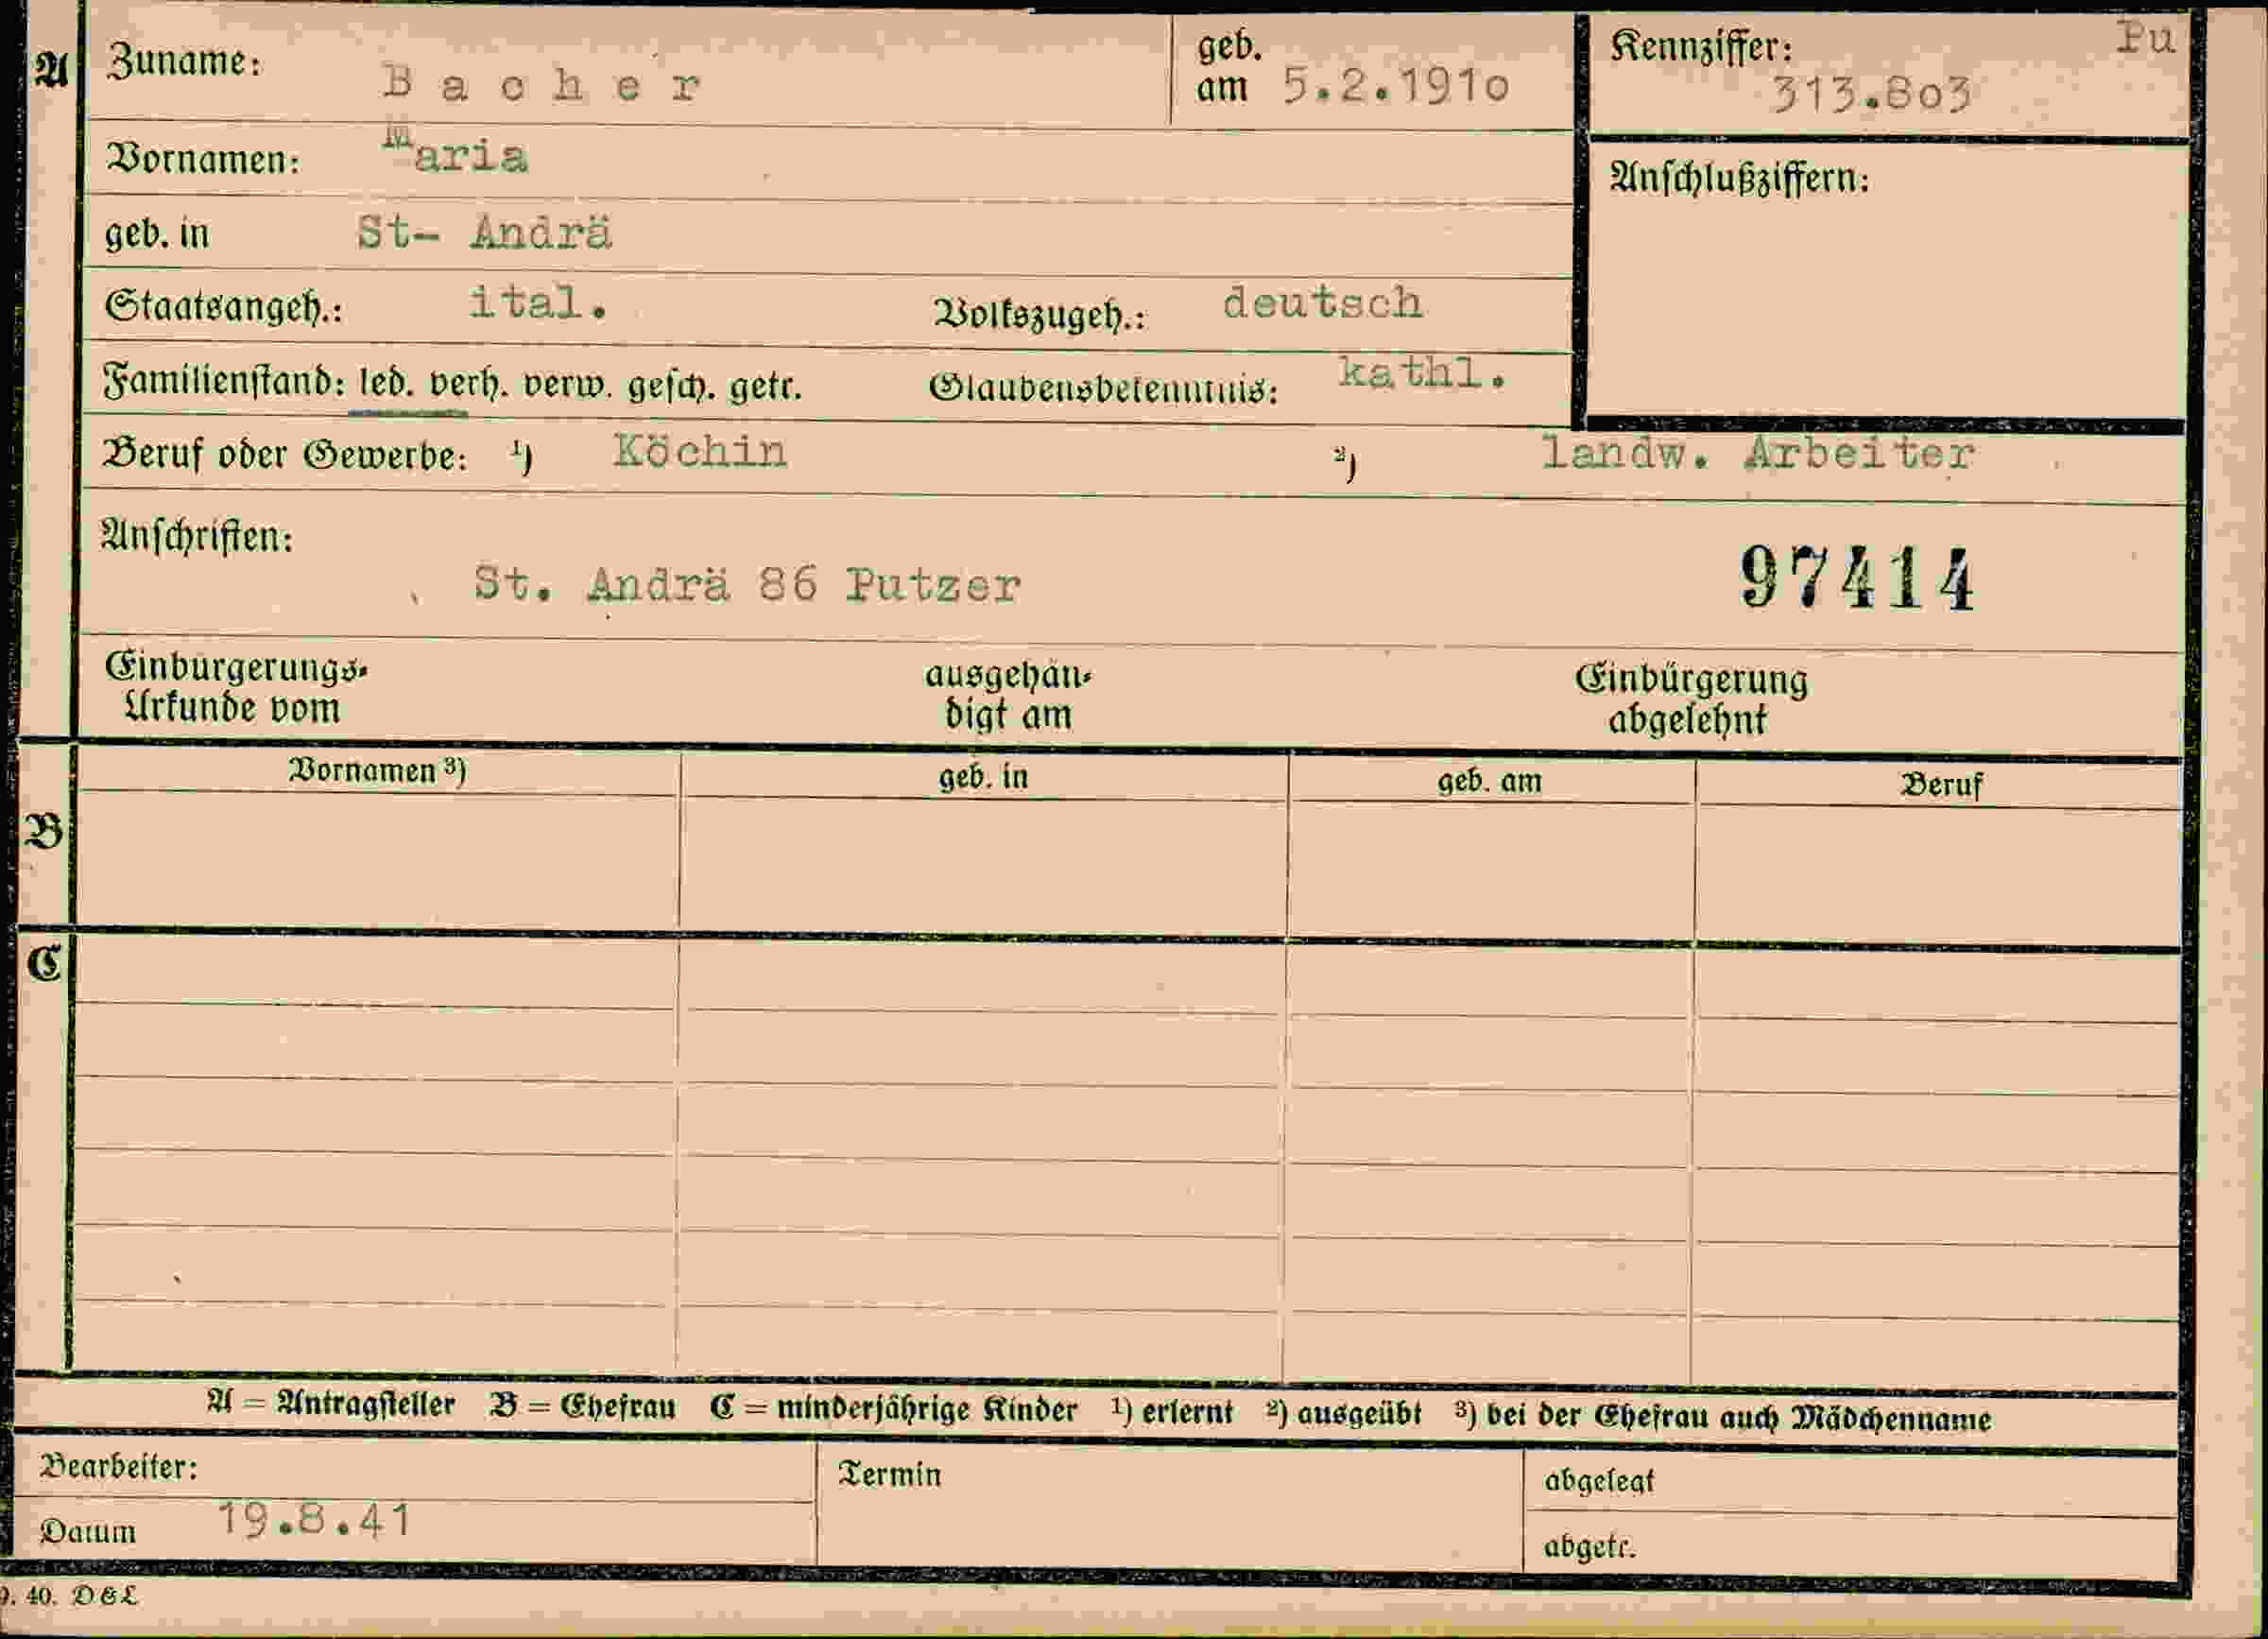 A Zuname: Bacher geb. am 5.2.191o Kennziffer: Pu 313.8o3
Vornamen: Maria Anschlußziffern:
geb. in St- Andrä
Staatsangeh.: ital. Volkszugeh.: deutsch
Familienstand: led. verh. verw. gesch. getr. Glaubensbekenntnis: kathl.
Beruf oder Gewerbe: ¹) Köchin ²) landw. Arbeiter
Anschriften:
St. Andrä 86 Putzer 97414
Einbürgerungs- ausgehän- Einbürgerung
Urkunde vom digt am abgelehnt
Vornamen ³) geb. in geb. am Beruf
B
C
A = Antragsteller B = Ehefrau C = minderjährige Kinder ¹) erlernt ²) ausgeübt ³) bei der Ehefrau auch Mädchenname
Bearbeiter: Termin abgelegt
Datum 19.8.41 abgetr.
9. 40. D & L